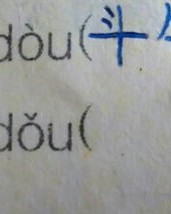 dòu(斗
dǒu(